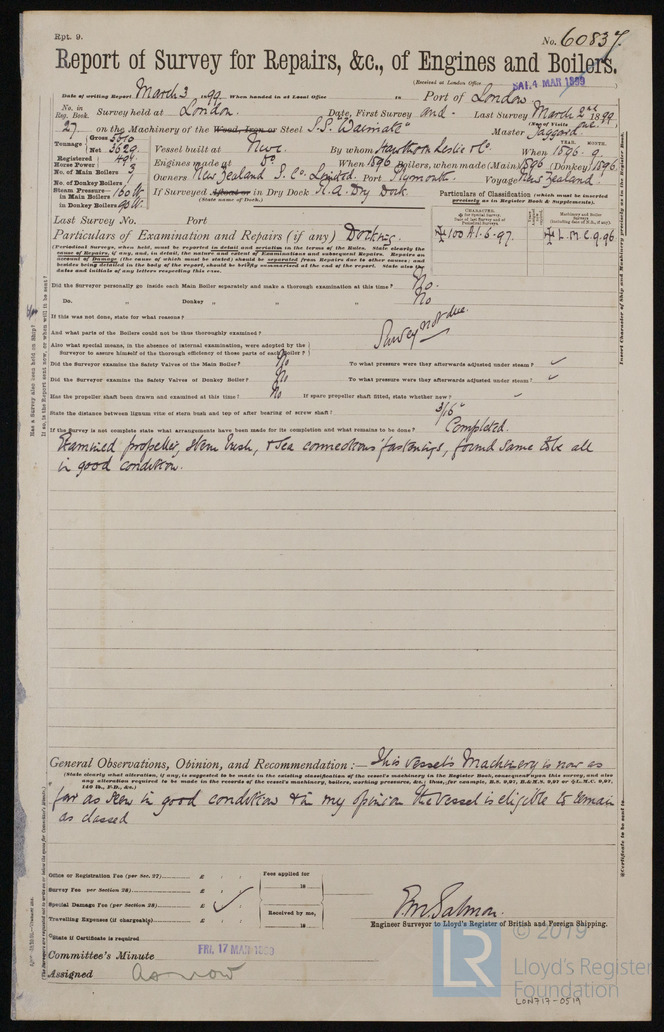 Rpt. 9.
No. 60837.
Report of Survey for Repairs, &c., of Engines and Boilers.
(Received at London Office SAT. 4 MAR 1899
Date of writing Report March 3 1899 When handed in at Local Office 18 Port of London
No. in Reg. Book. Survey held at London. Date, First Survey and - Last Survey March 2nd 1899
(No. of Visits one.)
27 on the Machinery of the Wood, Iron or Steel S.S. "Waimate" Master Jaggard
Tonnage Gross 5610 Net 3629 Vessel built at Newc. By whom Hawthorn Leslie & Co. When 1896. 9 YEAR. MONTH.
Registered Horse Power 494. Engines made at Do. When 1896 Boilers, when made (Main) 1896 (Donkey) 1896
No. of Main Boilers 3 Owners New Zealand S. Co. Limited. Port Plymouth. Voyage New Zealand.
No. of Donkey Boilers
Steam Pressure— in Main Boilers 160 lb. in Donkey Boilers 90 lb. If Surveyed Afloat or in Dry Dock R.A. Dry Dock
(State name of Dock.)
Particulars of Classification (which must be inserted precisely as in Register Book & Supplements).
Last Survey No. Port
CHARACTER.
✠ 100A1. 6.97.
✠ L.M.C. 9.96
Particulars of Examination and Repairs (if any) Docking.
(Periodical Surveys, when held, must be reported in detail and seriatim in the terms of the Rules. State clearly the
cause of Repairs, if any, and, in detail, the nature and extent of Examinations and subsequent Repairs. Repairs on
account of Damage (the cause of which must be stated) should be separated from Repairs due to other causes; and
besides being detailed in the body of the report, should be briefly summarised at the end of the report. State also the
dates and initials of any letters respecting this case.
Did the Surveyor personally go inside each Main Boiler separately and make a thorough examination at this time? No.
Do. „ Donkey „ „ „ No
If this was not done, state for what reasons?
Survey not due.
And what parts of the Boilers could not be thus thoroughly examined?
Also what special means, in the absence of internal examination, were adopted by the
Surveyor to assure himself of the thorough efficiency of those parts of each Boiler?
Did the Surveyor examine the Safety Valves of the Main Boiler? No To what pressure were they afterwards adjusted under steam?
Did the Surveyor examine the Safety Valves of Donkey Boiler? No To what pressure were they afterwards adjusted under steam?
Has the propeller shaft been drawn and examined at this time? No If spare propeller shaft fitted, state whether new?
State the distance between lignum vitæ of stern bush and top of after bearing of screw shaft? 3/16"
If the Survey is not complete state what arrangements have been made for its completion and what remains to be done? Completed.
Examined propeller, stern bush, & sea connections' fastenings, found same to be all
in good condition.
General Observations, Opinion, and Recommendation:— This vessel's Machinery is now as
(State clearly what alteration, if any, is suggested to be made in the existing classification of the vessel's machinery in the Register Book, consequent upon this survey, and also
any alteration required to be made in the records of the vessel's machinery, boilers, working pressure, &c.; thus, for example, B.S. 9,97, B.&M.S. 9,97 or ✠L.M.C. 9,97,
140 lb., F.D., &c.)
far as seen in good condition & in my opinion the vessel is eligible to remain
as classed
Office or Registration Fee (per Sec. 27) £ Fees applied for
Survey Fee per Section 28) £ 18
Special Damage Fee (per Section 28) £ Received by me,
Travelling Expenses (if chargeable) £ 18
P.M. Salmon.
Engineer Surveyor to Lloyd's Register of British and Foreign Shipping.
State if Certificate is required
Committee's Minute FRI. 17 MAR 1899
Assigned as now
LR © 2019
Lloyd's Register
Foundation
LON717-0519
Insert Character of Ship and Machinery precisely as in the Register Book.
Certificate to be sent to
Has a Survey also been held on Ship?
If so, is the Report sent now, or when will it be sent?